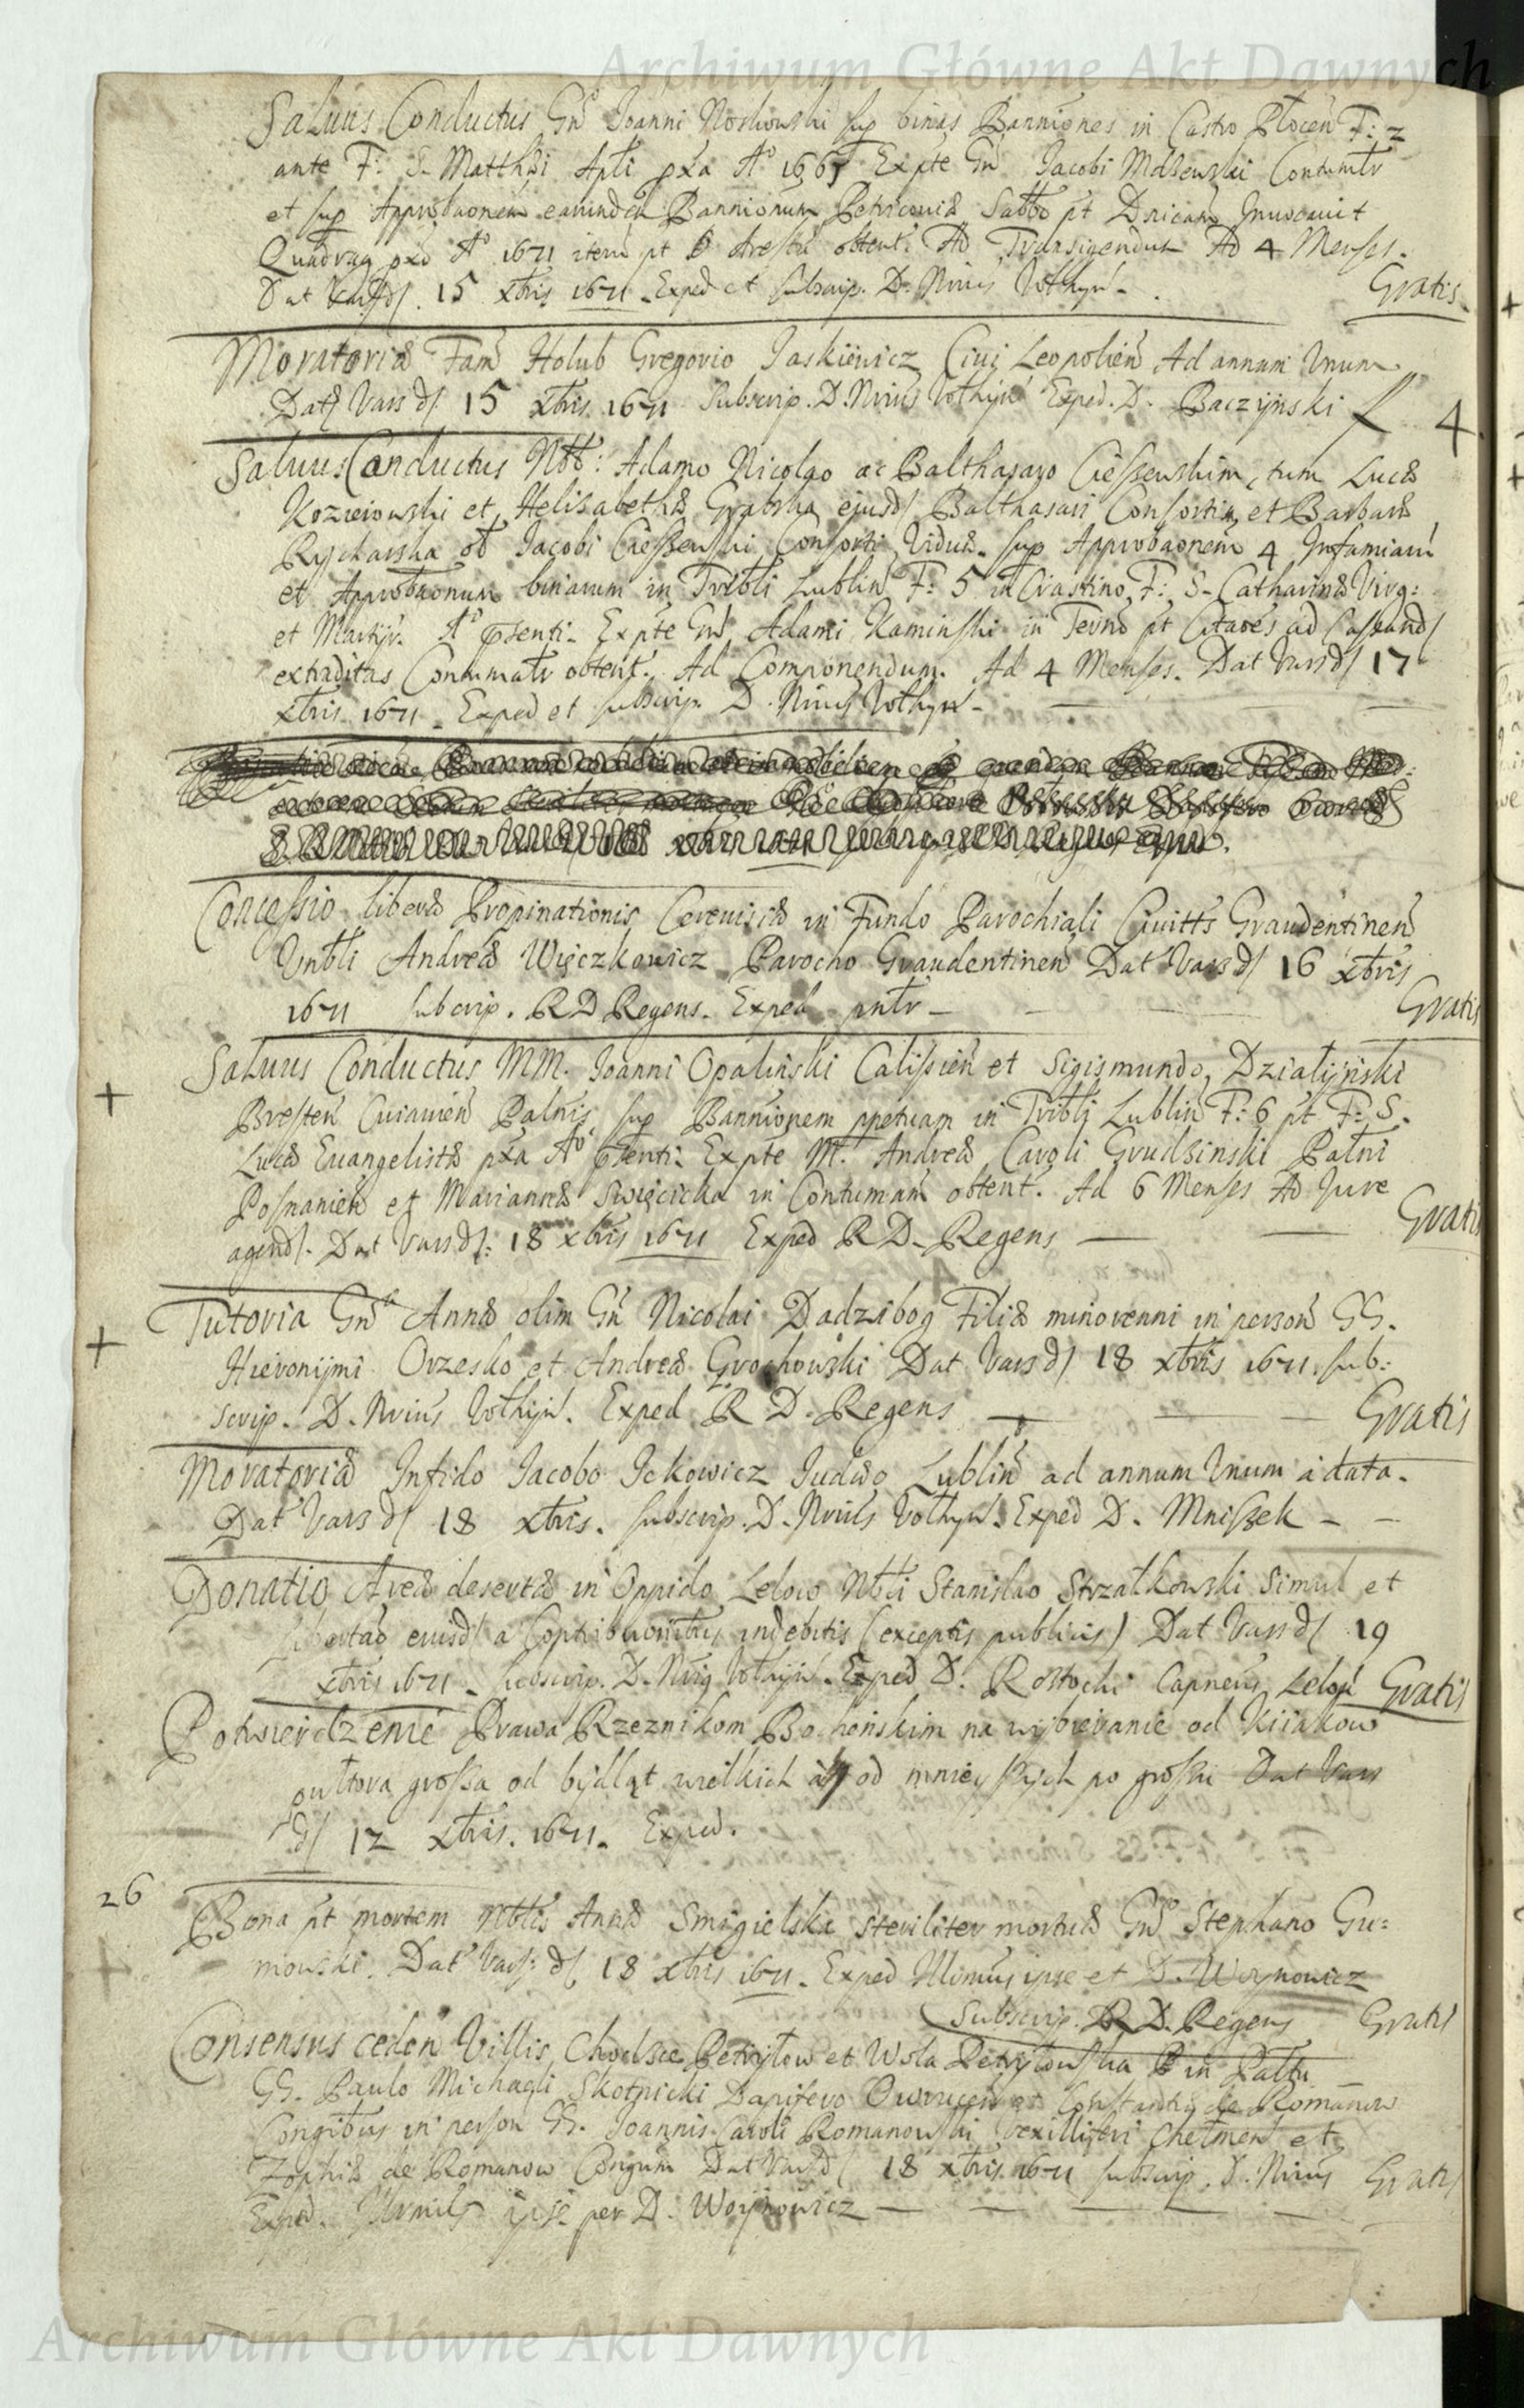 Archiwum Główne Akt Dawnych
Saluus Conductus Gnö Joanni Noskowski sup binas Banniones in Castro Plocen F: 2
ante F: S. Matthæi Apti pxa A° 1665 Expte Gn̄ Jacobi Contumtr
et sup Approbaonem earundem Bannionum Petricouiæ Sabbo pt Dnicam Inuocauit
Quadrag pxd A° 1671 item pt Arestu obtent. Ad Transigendum Ad 4 Menses.
Dat Vars d/. 15 xbris 1671 Exped et subscrip. D. Nrius Vothyn̄ Gratis
Moratoriæ Fam̄ Holub Gregorio Jaskiewicz Ciui Leopolien̄ Ad annum Vnum
Dat Vars d/ 15 xbris 1671 Subscrip. D. Nrius Vothyn̄ Exped. D. Baczyński f 4
Saluus Conductus Nbb: Adamo Nicolao ac Balthasaro Cieszewskim, tum Lucæ
Kozierowski et Helisabethæ Grabska ejusd/ Balthasari Consortis, et Barbaræ
Rycharska ol Jacobi Cieszewski Consorti Viduæ. sup Approbaonem 4 Infamiarū
et Approbaonum binarum in Tribli Lublin̄ F: 5 in Crastino F: S. Catharinæ Virg:
et Martyr. A° pñsenti. Expte Gn̄ Adami Kaminski in Termō pt Citaões ad Cassand/
extraditas Contumatr obtent. Ad Componendum. Ad 4 Menses. Dat Vars d/ 17
xbris 1671. Exped et subscrip. D. Nrius Vothyn̄
Concessio liberæ Propinationis Cereuisiæ in Fundo Parochiali Ciuitts Graudentinen̄
Vnbli Andreæ Więczkowicz Parocho Graudentinen̄ Dat Vars d/ 16 xbris
1671 subscrip. R D Regens. Exped pntr Gratis
+ Saluus Conductus MM. Joanni Opalinski Calissien̄ et Sigismundo Działyński
Bresten̄ Cuiauien̄ Palnis, sup Bannionem ppetuam in Tribli Lublin̄ F: 6 pt F: S.
Lucæ Euangelistæ pxa A° pñsenti. Expte M. Andreæ Caroli Grudzinski Palni
Posnanien̄ et Mariannæ Swięcicka in Contumam obtent. Ad 6 Menses Ad Jure
agend/. Dat Vars d/: 18 xbris 1671 Exped R D. Regens Gratis
+ Tutoria Gnæ Annæ olim Gn̄ Nicolai Dadzibog Filiæ minorenni in person̄ GG.
Hieronijmi Orzesko et Andreæ Grochowski Dat Vars d/ 18 xbris 1671. sub:
scrip. D. Nrius Vothyn̄. Exped R D. Regens Gratis
Moratoriæ Infido Jacobo Ickowicz Judæo Lublin̄ ad annum Vnum a data.
Dat Vars d/ 18 xbris. subscrip. D. Nrius Vothyn̄. Exped D. Mniszek
Donatio Areæ desertæ in Oppido Lelow Nbli Stanislao Strzałkowski simul et
libertaõ eiusd/ a Contribuonibus indebitis (exceptis publicis) Dat Vars d/ 19
xbris 1671. subscrip. D. Nrius Vothyn̄. Exped D. Rostocki Capneus Lelow Gratis
Potwierdzenie Prawa Rzeznikom Bochenskim na wybieranie od Kiiakow
pułtora grossa od bydląt wielkich a od mnieyszych po grossu Dat Vars
d/ 12 xbris. 1671. Exped.
26 Bona pt mortem Nblis Annæ Smigielska steriliter mortuæ Gnö Stephano Gu:
mowski. Dat Vars: d/ 18 xbris 1671. Exped Illmus ipse et D. Woynowicz
Subscrip. R D. Regens Gratis
Consensus ceden̄ Villis Petryłow et Wola Petryłowska in Paltu
GG. Paulo Michaeli Skotnicki Dapifero Owrucen̄ et Constantiæ de Romanow
Congibus in person GG. Joannis Caroli Romanowski vexilliferi Chełmen̄ et
Zophiæ de Romanow Congum Dat Vars d/ 18 xbris 1671 subscrip. D. Nrius Gratis
Exped. Illmus ipse per D. Woynowicz
Archiwum Główne Akt Dawnych